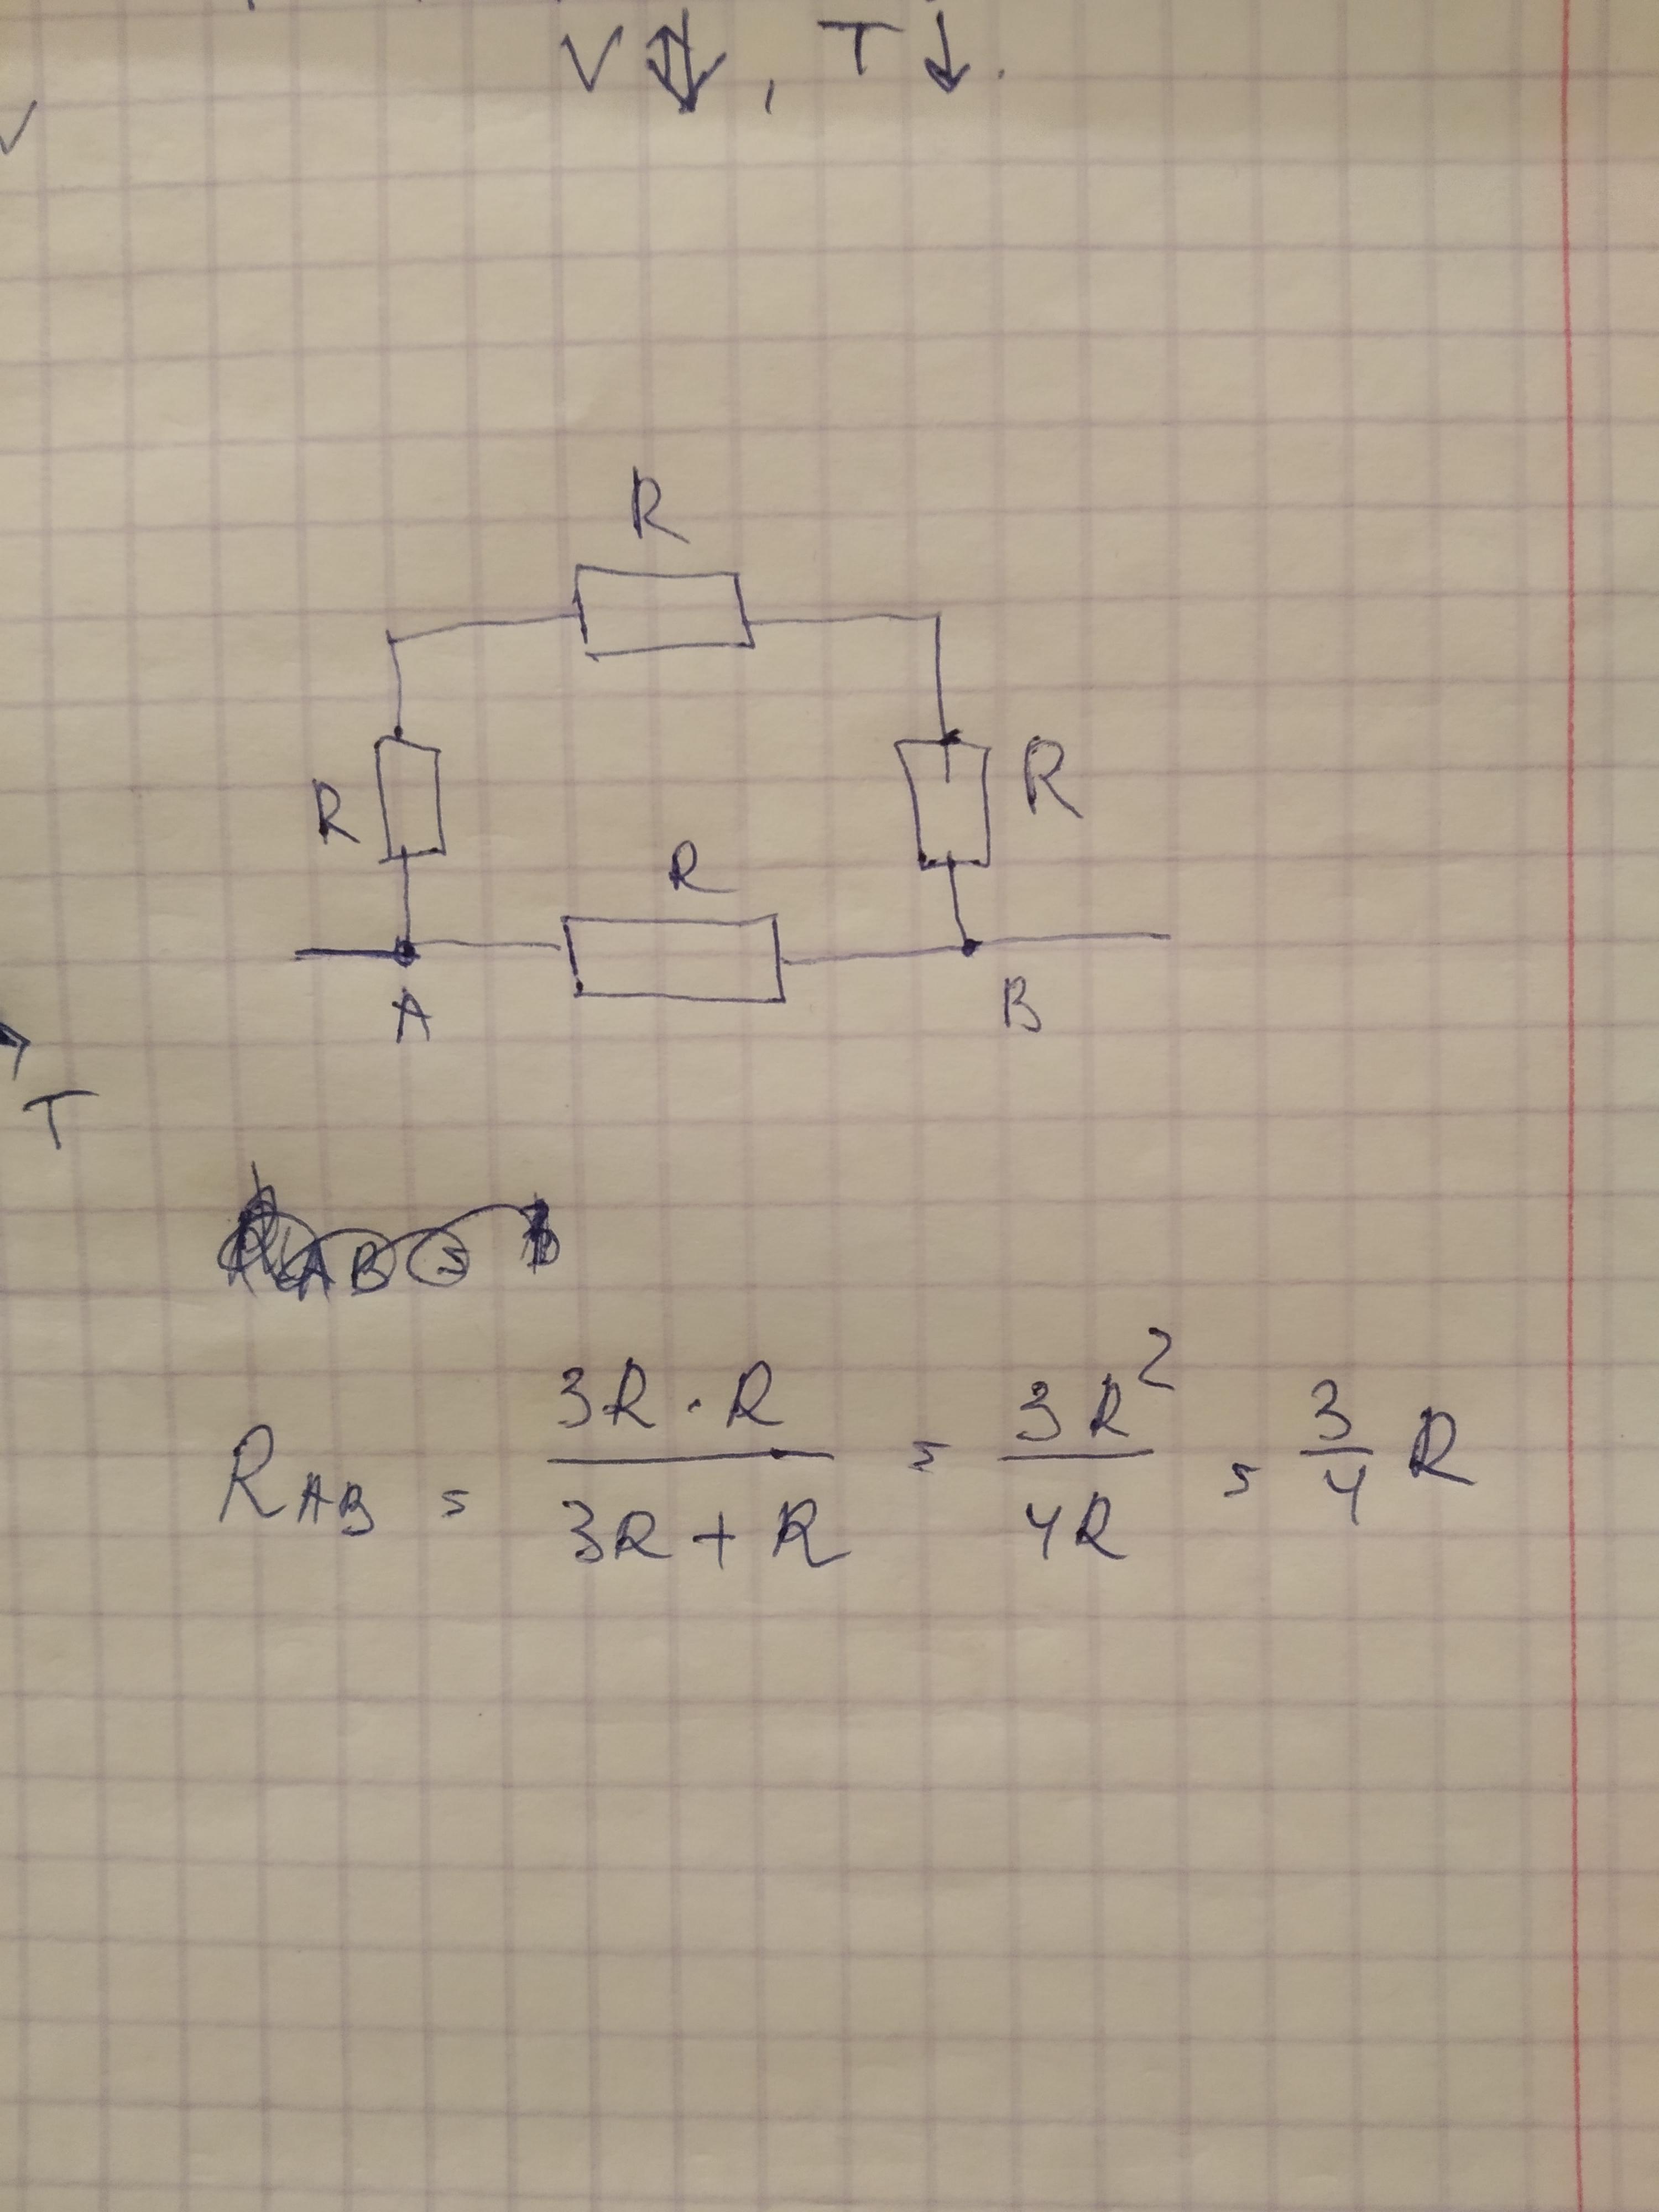 V ⇓, T ↓.
V
R
R
R
R
A
B
T
R_AB = (3R · R)/(3R + R) = 3R²/4R = 3/4 R